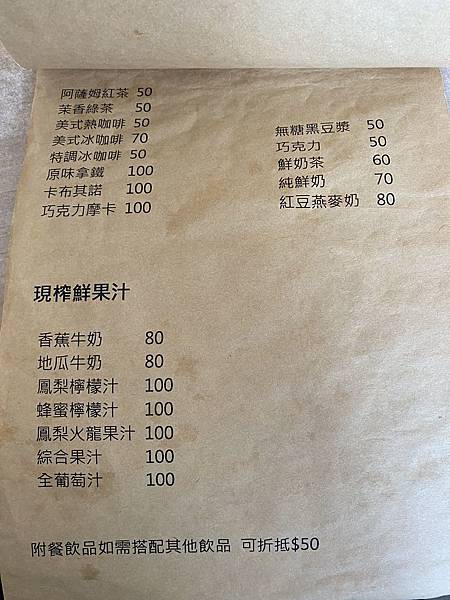 阿薩姆紅茶 50
茉香綠茶 50
美式熱咖啡 50
美式冰咖啡 70
特調冰咖啡 50
原味拿鐵 100
卡布其諾 100
巧克力摩卡 100
無糖黑豆漿 50
巧克力 50
鮮奶茶 60
純鮮奶 70
紅豆燕麥奶 80
現榨鮮果汁
香蕉牛奶 80
地瓜牛奶 80
鳳梨檸檬汁 100
蜂蜜檸檬汁 100
鳳梨火龍果汁 100
綜合果汁 100
全葡萄汁 100
附餐飲品如需搭配其他飲品 可折抵$50